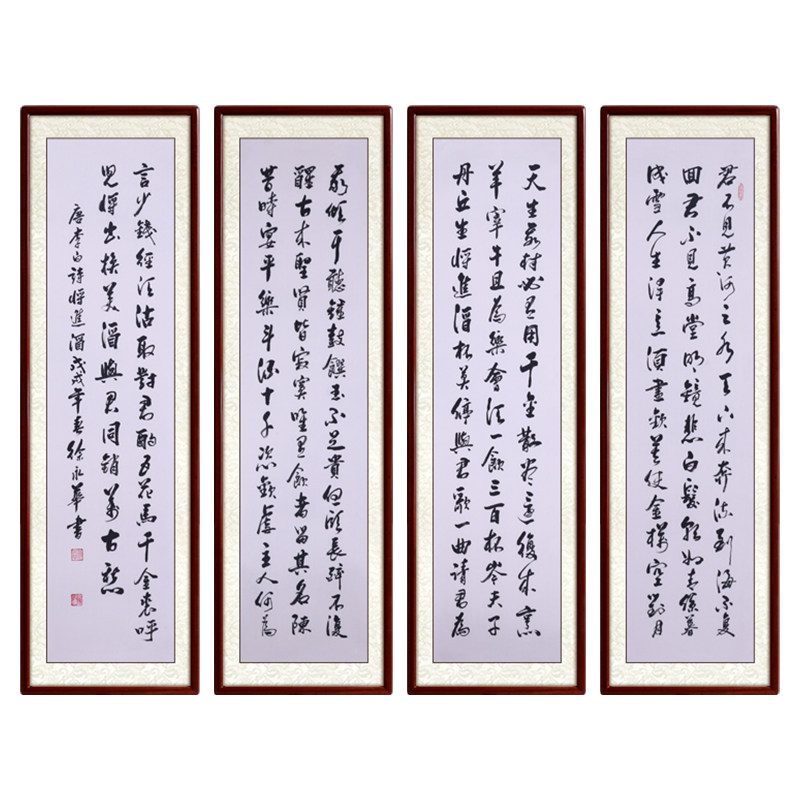 君不見黄河之水天上来奔流到海不復
回君不見高堂明鏡悲白髮朝如青絲暮
成雪人生得意須盡歡莫使金樽空對月
天生我材必有用千金散盡還復来烹
羊宰牛且為樂會須一飲三百杯岑夫子
丹丘生將進酒杯莫停與君歌一曲請君為
我傾耳聽鐘鼓饌玉不足貴但願長醉不復
醒古来聖賢皆寂寞唯有飲者留其名陳
昔時宴平樂斗酒十千恣歡謔主人何為
言少錢徑須沽取對君酌五花馬千金裘呼
兒將出換美酒與君同銷萬古愁
唐李白詩將進酒戊戌年春徐永華書